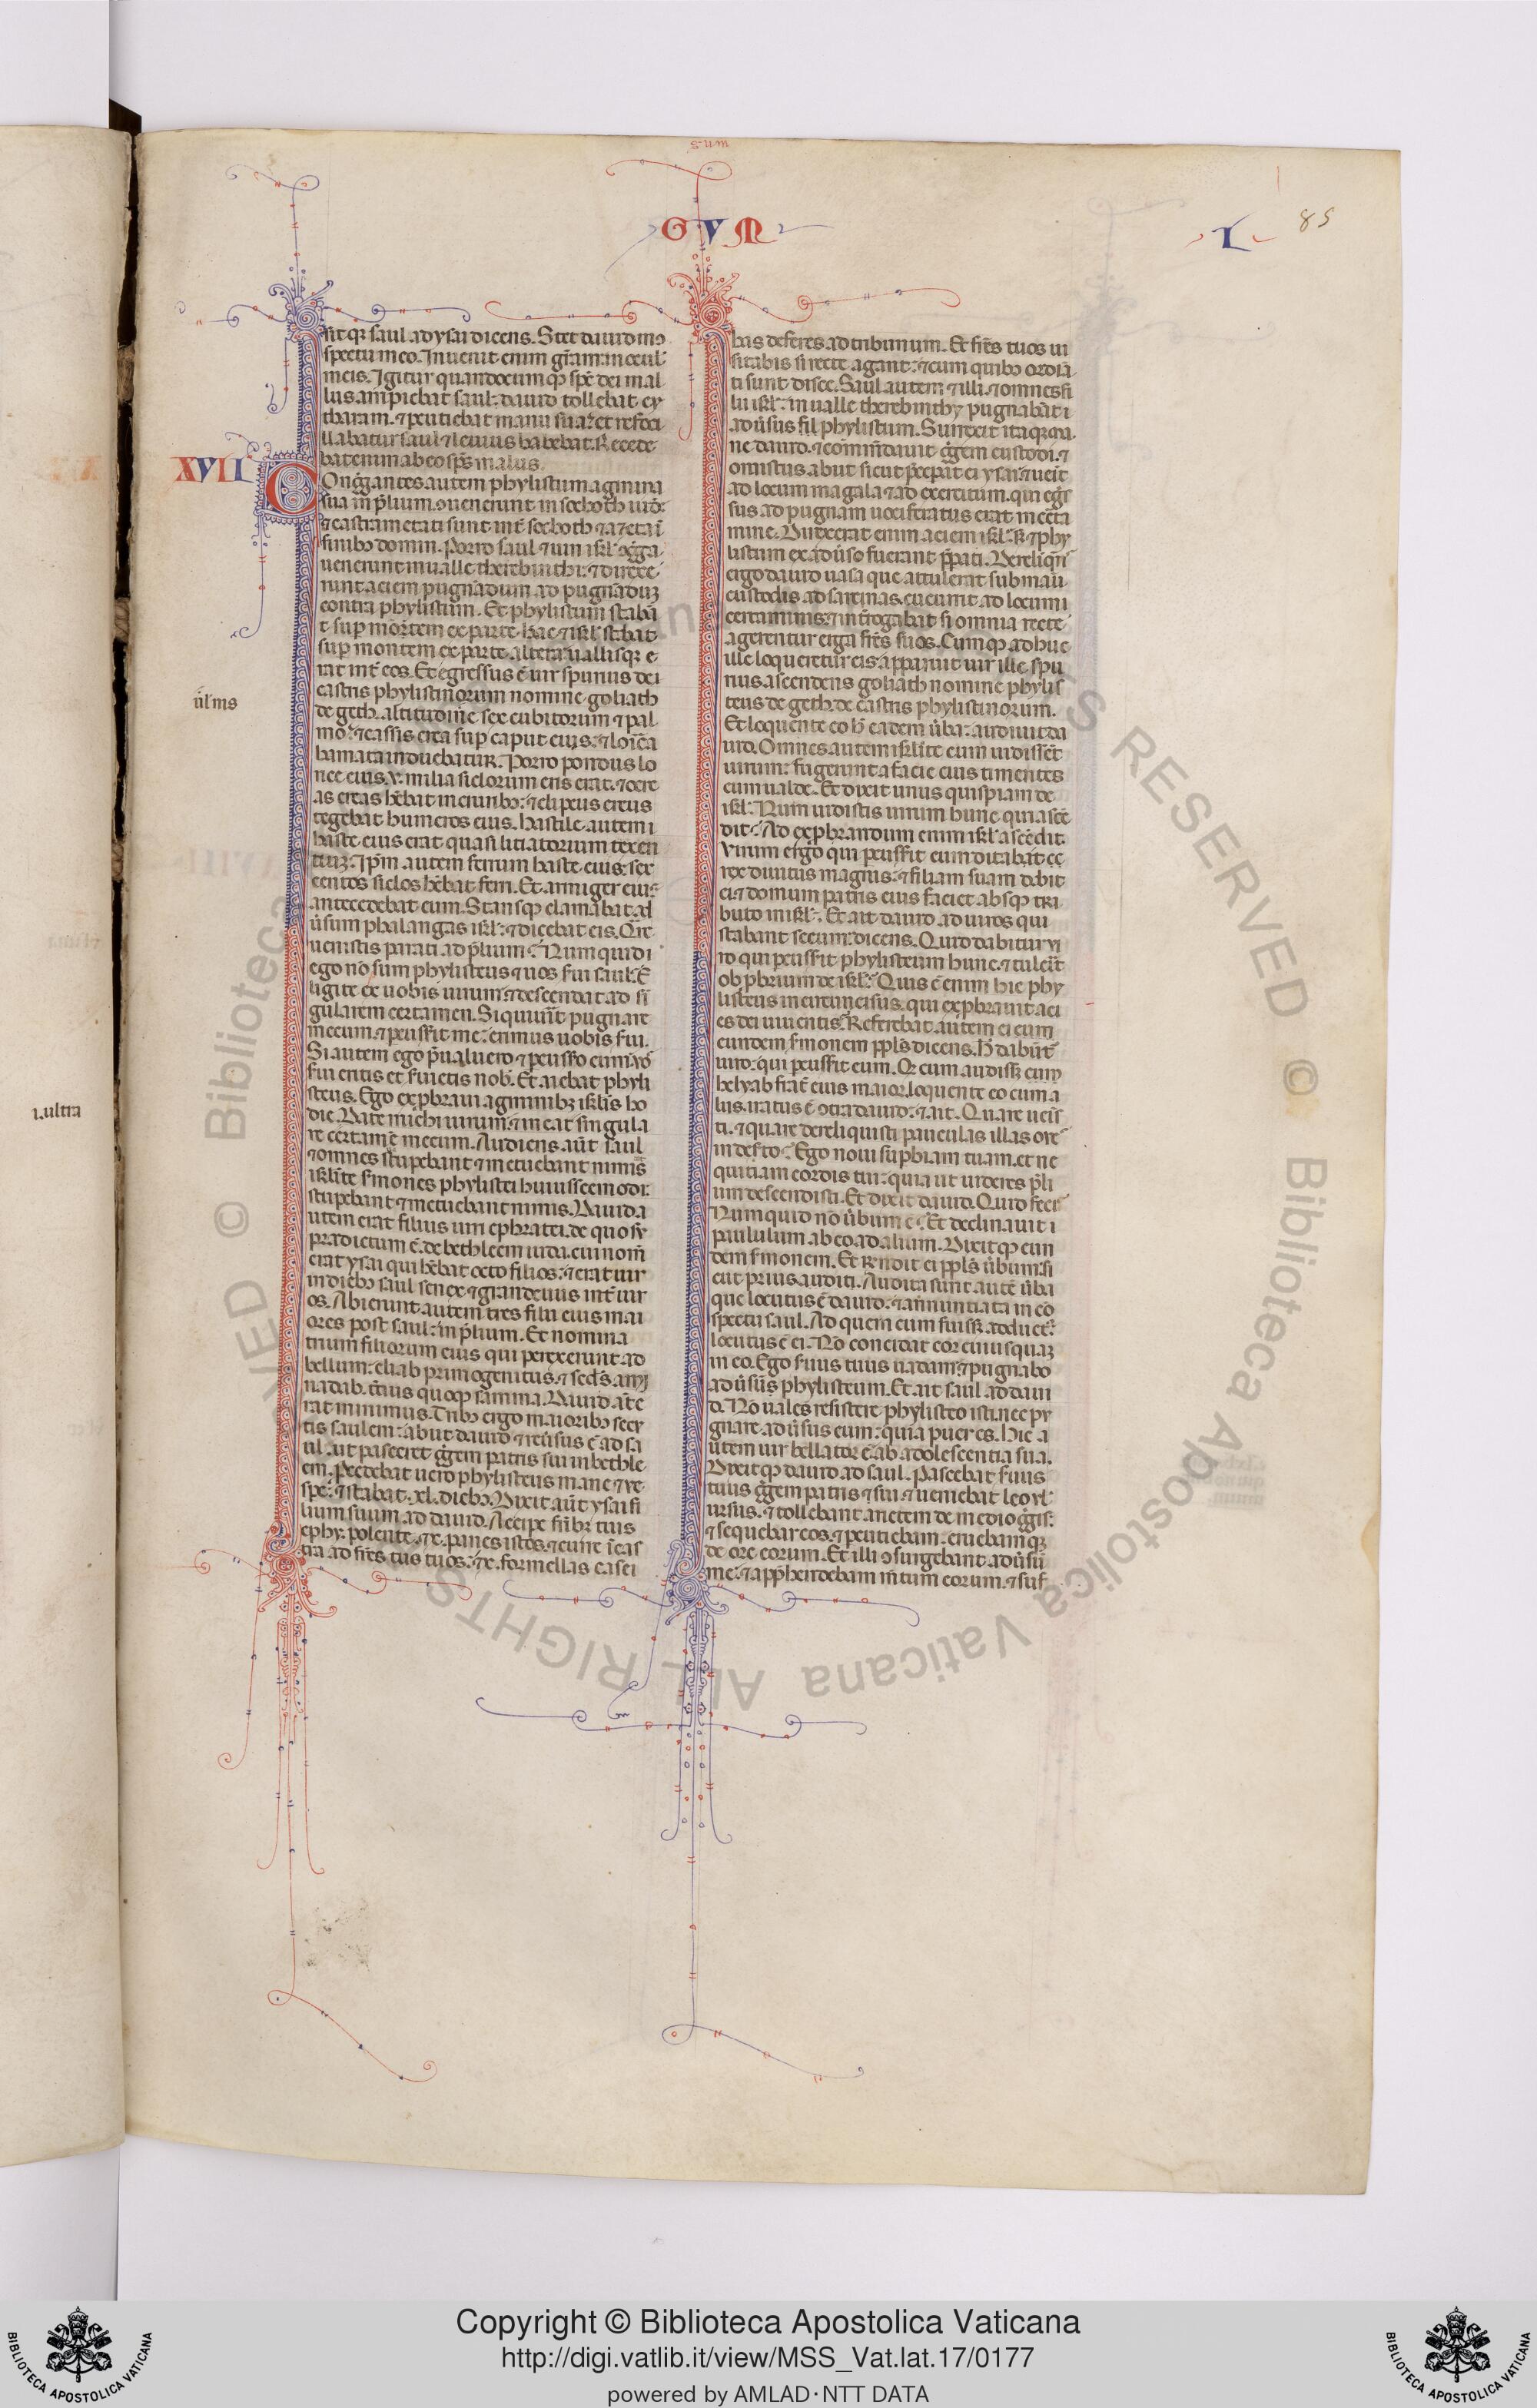 GVM
I
85
sitq; saul ad ysai dicens. Stet dauid in ɔ
spectu meo. Inuenit enim gr̄am in ocul'
meis. Igitur quandocumq; sp̄c dei mal
lus arripiebat saul: dauid tollebat cy
tharam. ⁊ peutiebat manu sua: et refoci
llabatur saul ⁊ leuius habebat. Recede
bat enim ab eo sp̄s malus.
XVII
Congg̃antes autem phylistiim agmina
sua in p̄lium. ɔuenerunt in sochoth iud̄:
⁊ castrametati sunt int̄ sochoth ⁊ azeta ī
finibꝫ domin. Porro saul ⁊ uiri isr̄l ɔg̃ga
uenerunt in ualle therebinthi: ⁊ direxe
runt aciem pugnādum ad pugnāduꝫ
contra phylistiim. Et phylistiim stabā
t. sup mōtem ex parte hac ⁊ isr̄l stabat
sup montem ex parte altera uallisq; e
rat int̄ eos. Et egressus ē uir spurius dei
castris phylistinorum nomine goliath
de geth. altitudinē sex cubitorum ⁊ pal
mo: ⁊ cassis erea sup caput eius: ⁊ lorīca
hamata induebatur. Porro pondus lo
rice eius. v. milia siclorum eris erat. ⁊ ocre
as ereas hēbat in cruribꝫ: ⁊ clipeus ereus
tegebat humeros eius. Hastile autem
haste eius erat quasi liciatorium texen
tiuꝫ. Ip̄m autem ferrum haste eius: sex
centos siclos hēbat ferri. Et armiger eiuˢ
antecedebat eum. Stansq; clamabat ad
ūsum phalangas isr̄l: ⁊ dicebat eis. Qr̄e
uenistis parati ad p̄lium? Numquid
ego nō sum phylisteus ⁊ uos s̄ui saul? E
ligite ex uobis uirum. ⁊ descendat ad sī
gularem certamen. Si quiuīt pugnare
mecum. ⁊ peusserit me: erimus uobis s̄ui.
Si autem ego p̄ualuero. ⁊ peussero eum: uō
s̄ui eritis et s̄uietis nob̄. Et aiebat phyli
steus. Ego exp̄braui agminibꝫ isr̄lis ho
die. Date michi uirum: ⁊ ineat singula
re certam̄e mecum. Audiens aūt saul
⁊ omnes stupebant ⁊ metuebant nimis
isr̄lite s̄mones phylistei huiuscemodi:
stupebant ⁊ metuebant nimis. Dauid a
utem erat filius uiri ephratei. de quo sr̄
pradictum ē. de bethleem iuda. cui nom̄
erat ysai qui hēbat octo filios: ⁊ erat uir
in diebꝫ saul senex ⁊ grandeuus int̄ uir
os. Abierunt autem tres filii eius mai
ores post saul: in p̄lium. Et nomina
trium filiorum eius qui perrexerunt ad
bellum: eliab primogenitus. ⁊ sec̄ds ami
nadab. t̄cius quoq; samma. Dauid aūt e
rat minimus. Tribꝫ ergo maioribꝫ secu
tis saulem: abiit dauid ⁊ reūsus ē ad sa
ul. ut pasceret g̃gem patris sui in bethle
em. Procedebat uero phylisteus mane ⁊ ve
spe: ⁊ stabat. xl. diebꝫ. Dixit aūt ysai fi
lium suum ad dauid. Accipe fr̄ibꝫ tuis
ephy. polente. ⁊ x. panes istos. ⁊ curre ī cas
tra ad fr̄es tus tuos: ⁊ x. formellas casei
has deferes ad tribunum. Et fr̄es tuos ui
sitabis si recte agant: ⁊ cum quibꝫ ordiā
ti sunt disce. Saul autem ⁊ illi. ⁊ omnes fi
lii isr̄l: in ualle therebinthy pugnabāt
adūsus fil phylistiim. Surrexit itaq; ma
ne dauid. ⁊ com̄mdauit g̃gem custodi. ⁊
onustus abiit sicut p̄cepat ei ysai: ⁊ ueīt
ad locum magala ⁊ ad exercitum. qui eg̃s
sus ad pugnam uociferatus erat in cc̄ta
mine. Direxerat enim aciem isr̄l. s; ⁊ phy
listiim ex aduso fuerant p̄pati. Dereliqn̄
ergo dauid uasa que attulerat sub mau
custodis ad sarcinas. cucurrit ad locum
certaminis. ⁊ int̄rogabat si omnia recte
agerentur erga fr̄es suos. Cumq; adhuc
ille loqueretur eis. apparuit uir ille spu
rius ascendens goliath nomine phylis
teus de geth. de castris phylistinorum.
Et loquente eo h̄ eadem ūba: audiuit da
uid. Omnes autem isr̄lite cum uidissēt
uirum: fugerunt a facie eius timentes
eum ualde. Et dixit unus quispiam de
isr̄l. Num uidistis uirum hunc qui ascē
dit? Ad exp̄brandum enim isr̄l ascēdit.
Virum ergo qui peusserit eum ditabāt ee
rex diuitus magnis: ⁊ filiam suam dabit
ei. ⁊ domum patris eius faciet absq; tri
buto in isr̄l. Et ait dauid ad uiros qui
stabant secum: dicens. Quid dabitur vi
ro qui peusserit phylisteum hunc. ⁊ tulerīt
obp̄brium de isr̄l? Quis ē enim hic phy
listeus incircuncisus. qui exp̄brauit aci
es dei uiuentis? Referebat autem ei eum
eundem s̄monem pp̄ls dicens. H̄ dabūt'
uiro: qui peusserit eum. Q; cum audisꝫ eum
helyab frat̄ eius maior. loquente eo cum a
liis. iratus ē ɔtra dauid: ⁊ ait. Quare ueīs
ti. ⁊ quare dereliquisti pauculas illas oues
in desto? Ego noui sup̄biam tuam. et ne
quitiam cordis tui: quia ut uideres p̄li
um descendisti. Et dixit dauid. Quid feci?
Numquid nō ūbum ē? Et declinauit
paululum ab eo ad alium. Dixitq; eun
dem s̄monem. Et r̄ndit ei pp̄ls ūbum: si
cut prius audiit. Audita sunt autē ūba
que locutus ē dauid. ⁊ annuntiata in co
spectu saul. Ad quem cum fuisꝫ adduct':
locutus ē ei. Nō concidat cor cuiusquaꝫ
in eo. Ego s̄uus tuus uadam: ⁊ pugnabo
adūsus phylisteum. Et ait saul ad daui
d. Nō uales resistere phylisteo isti. nec pv
gnare adūsus eum: quia puer es. Hic a
utem uir bellator ē ab adolescentia sua.
Dixitq; dauid ad saul. Pascebat s̄uus
tuus g̃gem patris ⁊ sui. ⁊ ueniebat leo vl
ursus. ⁊ tollebant arietem de medio g̃gis:
⁊ sequebar eos. ⁊ peutiebam. eruebamq;
de ore eorum. Et illi ɔsurgebant adūsū
me: ⁊ app̄hendebam m̄tum eorum. ⁊ suf
Copyright © Biblioteca Apostolica Vaticana
http://digi.vatlib.it/view/MSS_Vat.lat.17/0177
powered by AMLAD·NTT DATA